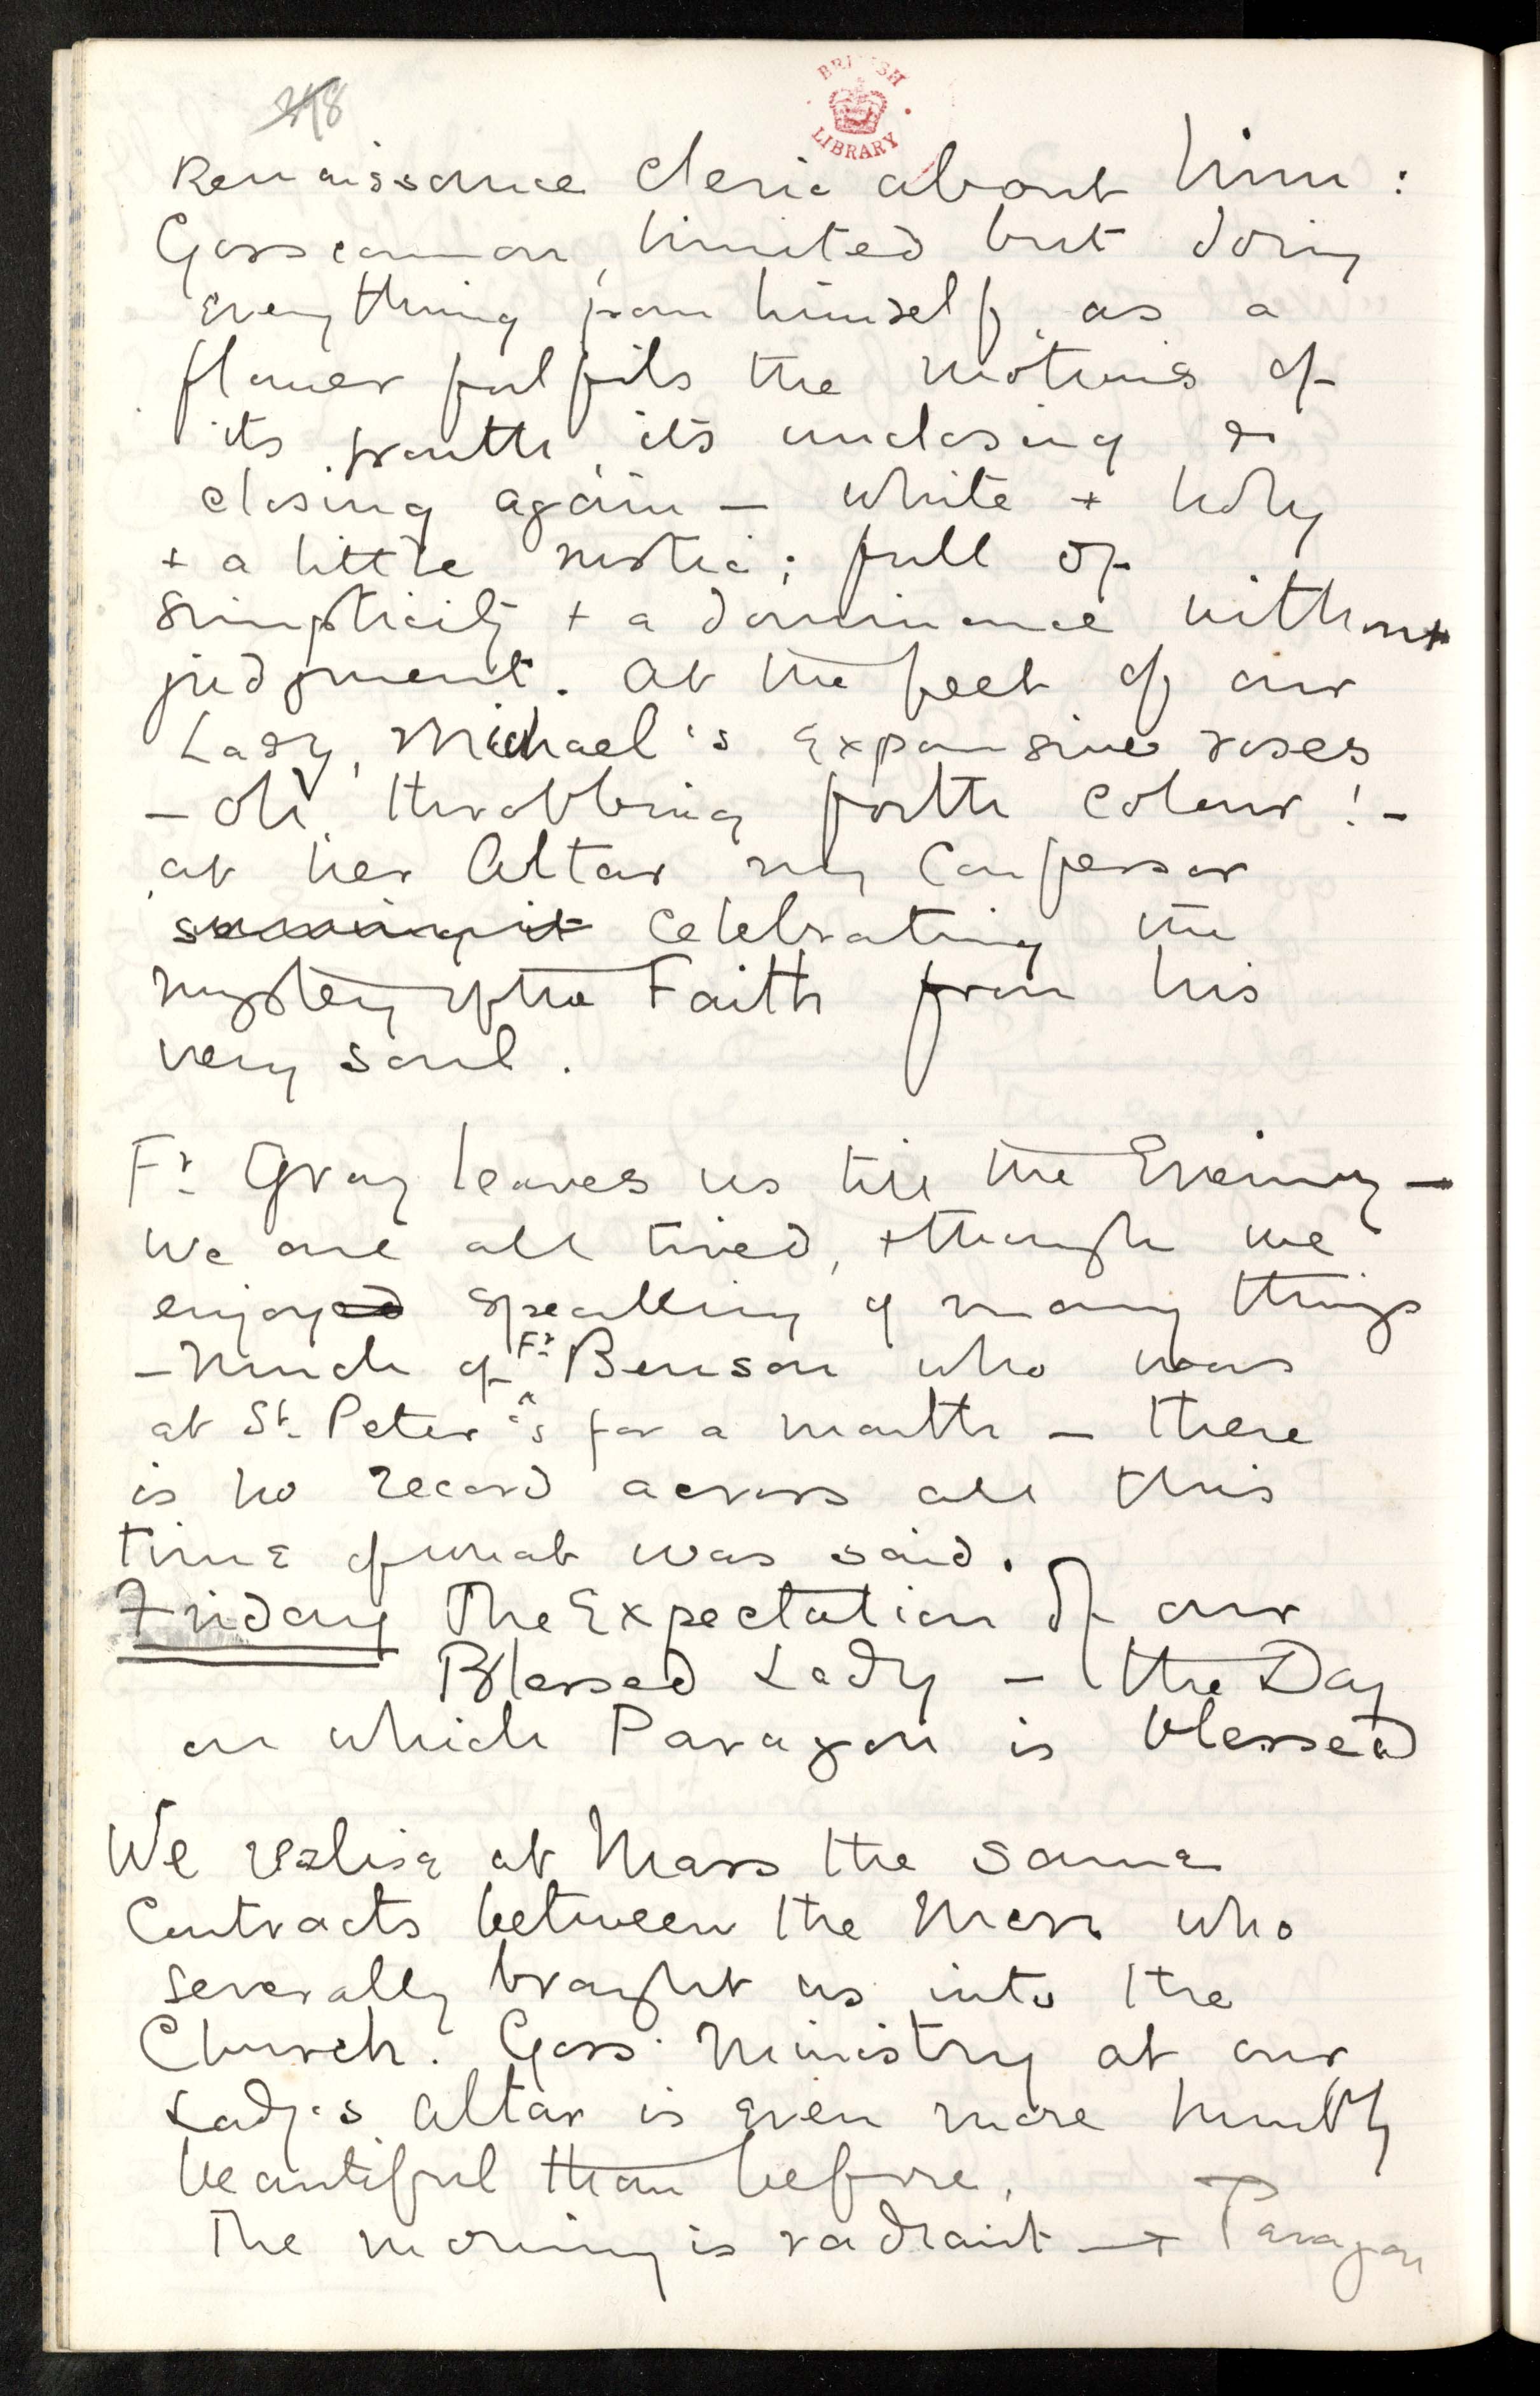 BRITISH
LIBRARY
Renaissance cleric about him:
Gosscannon, limited but doing
everything from himself, as a
flower fulfils the motions of
its growth, its unclosing &
closing again — white + holy
+ a little rustic; full of
simplicity + a dominance without
judgment. At the feet of our
Lady, Michael's expansive roses
— Oh, throbbing forth colour! —
at her Altar my Confessor
celebrating the
mystery of the Faith from his
very soul.
Fr. Gray leaves us till the Evening —
We are all tired, + though we
enjoy speaking of many things
— much of Fr. Benson who was
at St. Peter's for a month — there
is no record across all this
time of what was said.
Friday The Expectation of our
Blessed Lady — the Day
on which Paragon is blessed
We realise at Mass the same
Contrasts between the Men who
severally brought us into the
Church. Goss' Ministry at our
Lady's Altar is even more humbly
beautiful than before.
The morning is radiant — + Paragon